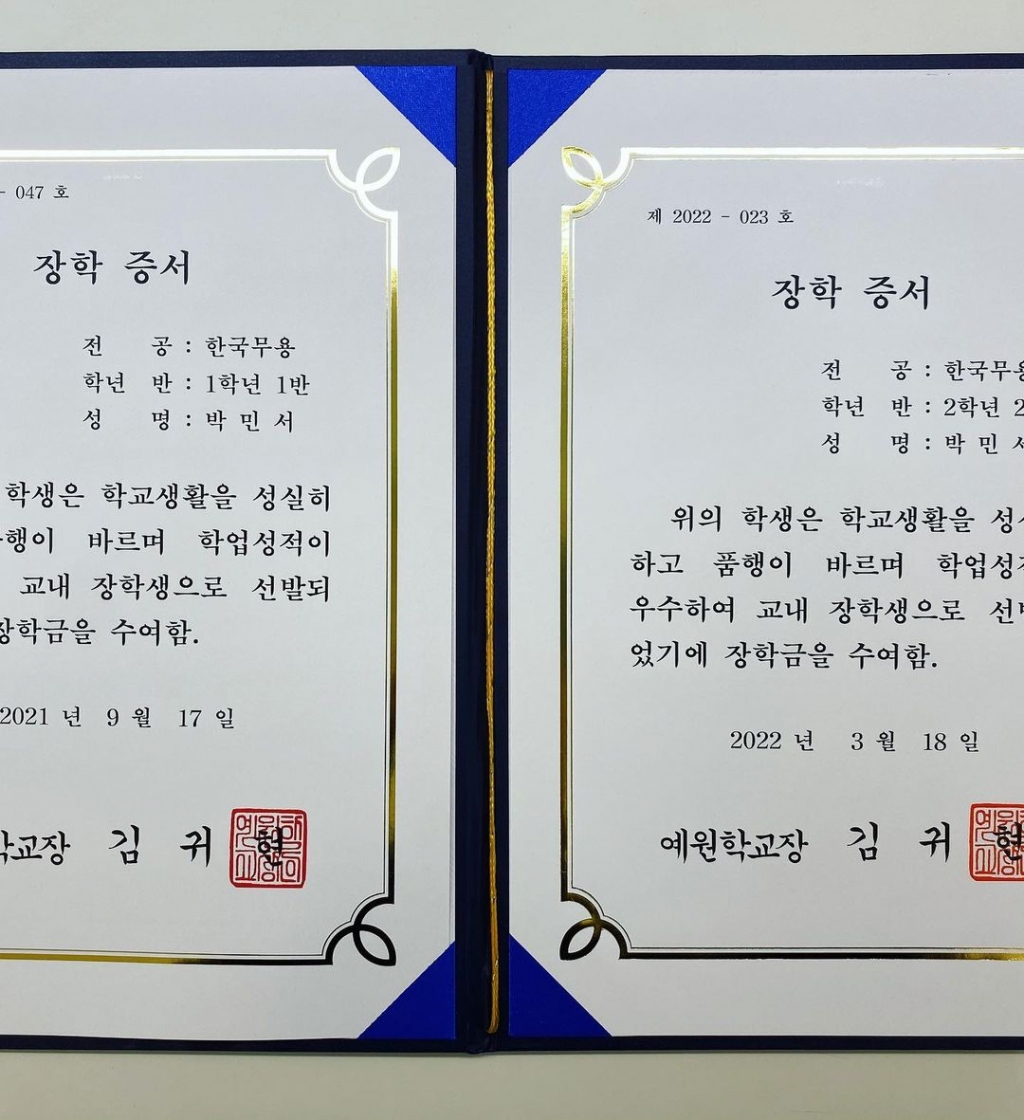 - 047 호
장학 증서
전 공 : 한국무용
학년 반 : 1학년 1반
성 명 : 박 민 서
학생은 학교생활을 성실히
바르며 학업성적이
교내 장학생으로 선발되
장학금을 수여함.
2021 년 9 월 17 일
김 귀 현
제 2022 - 023 호
장학 증서
전 공 : 한국무용
학년 반 : 2학년
성 명 : 박 민
위의 학생은 학교생활을
하고 품행이 바르며
우수하여 교내 장학생으로
었기에 장학금을 수여함.
2022 년 3 월 18 일
예원학교장 김 귀 현